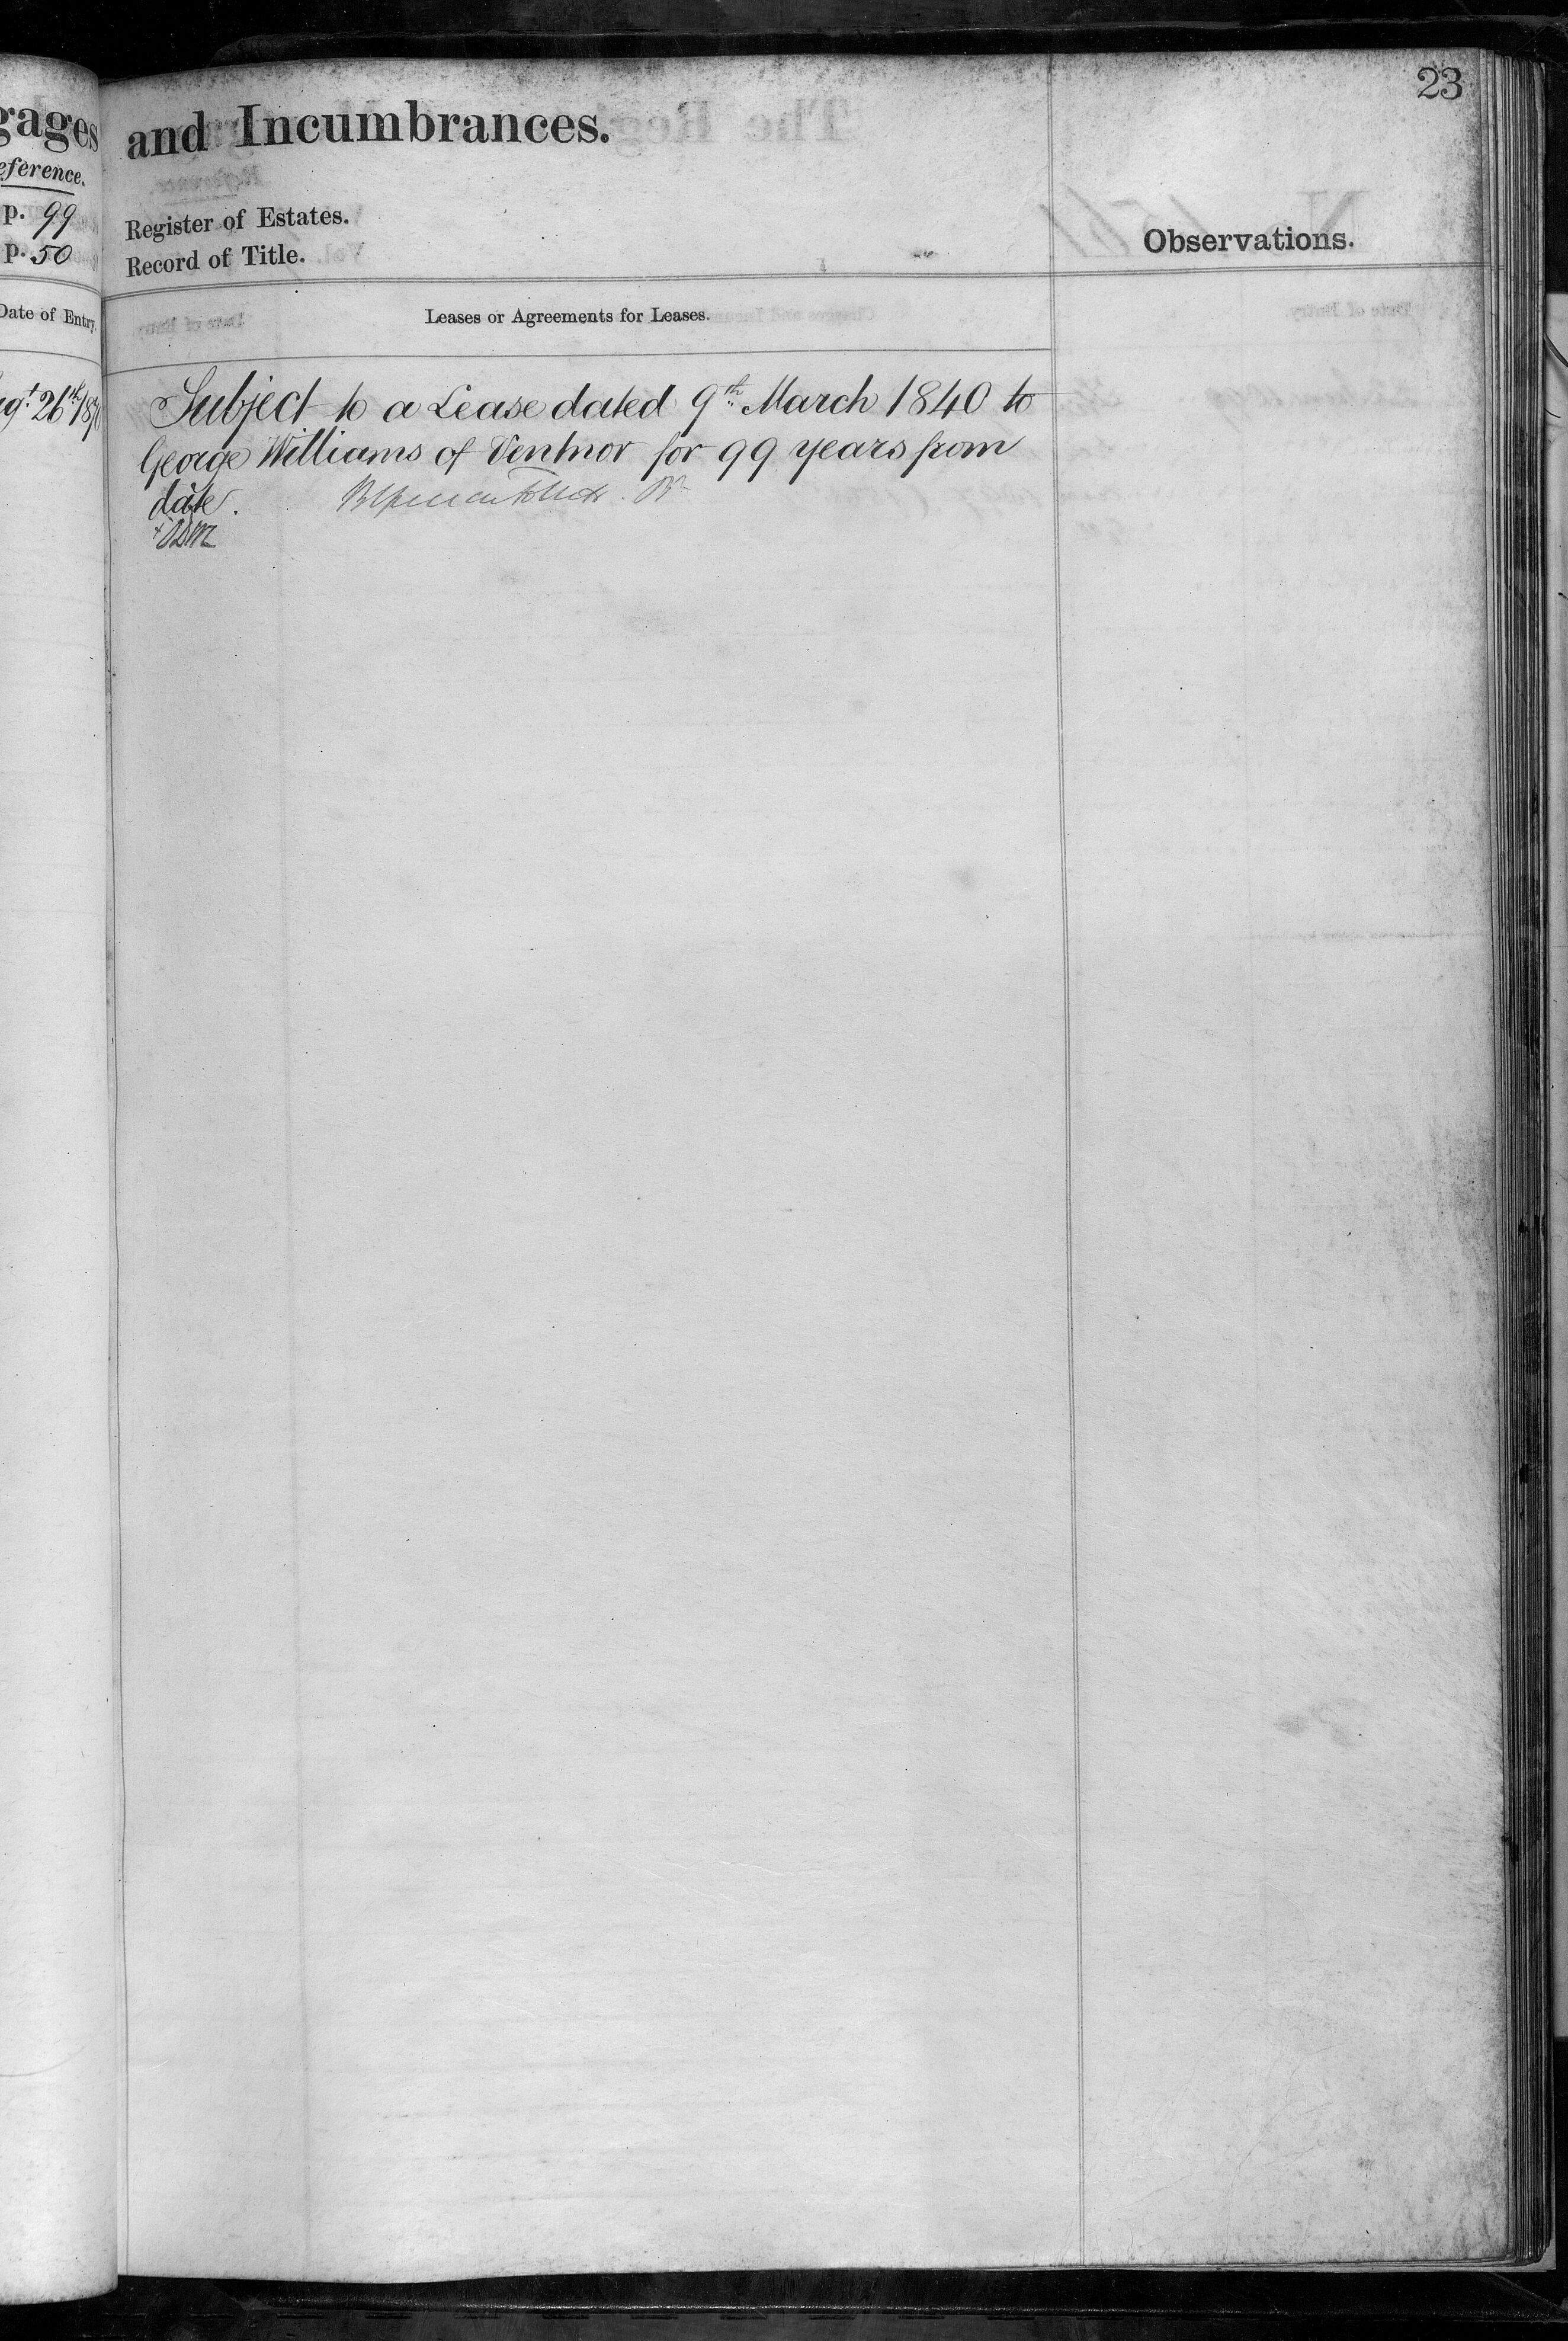 23
gages
and Incumbrances.
eference.
p. 99
Register of Estates.
p. 50
Record of Title.
Observations.
Date of Entry.
Leases or Agreements for Leases.
26th
Subject to a Lease dated 9th March 1840 to
George Williams of Ventnor for 99 years from
date.